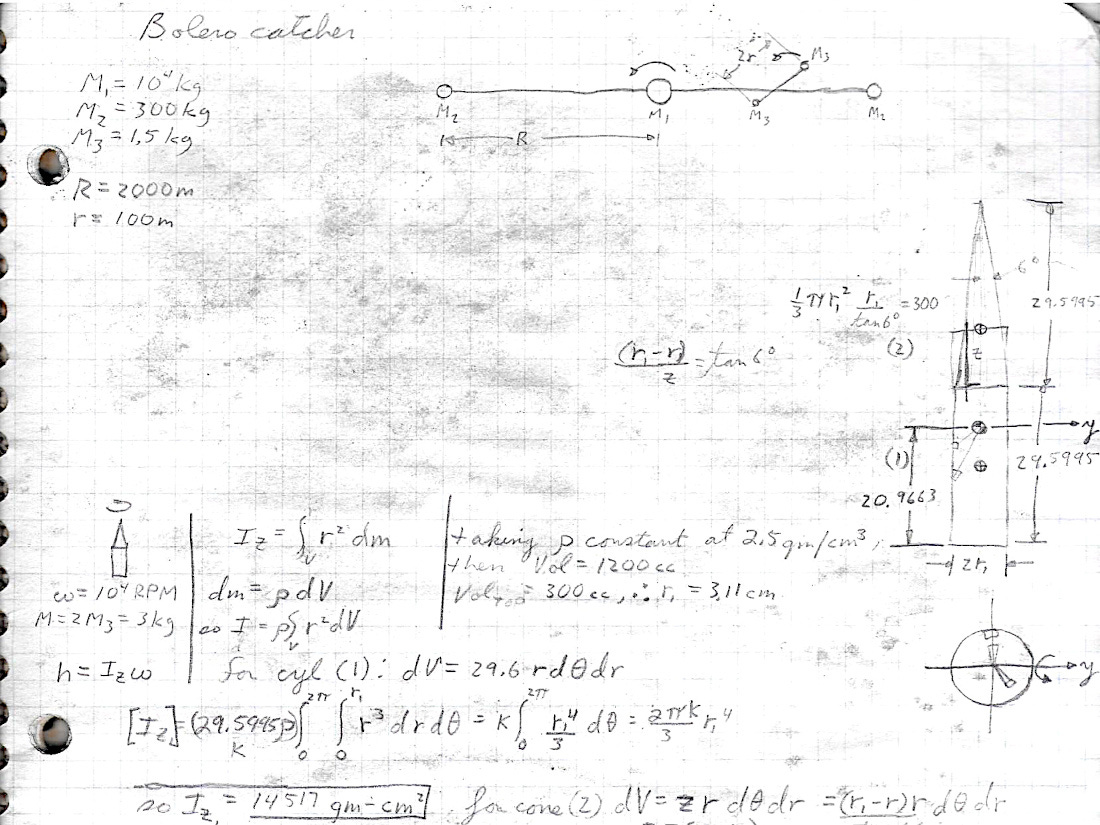 Bolero catcher
M₁ = 10⁴ kg
M₂ = 300 kg
M₃ = 1,5 kg
R = 2000 m
r = 100 m
M₂
M₁
M₃
M₃
M₂
2r
R
6°
29.5995
1/3 π r₁² r₁/tan6° = 300
(2)
(r₁-r)/z = tan 6°
z
y
(1)
29.5995
20.9663
2r₁
y
ω = 10⁴ RPM
M = 2M₃ = 3 kg
h = I_z ω
I_z = ∫_V r² dm
dm = ρ dV
so I = ρ∫_V r² dV
taking ρ constant at 2.5 gm/cm³,
then Vol = 1200 cc
= 300 cc, ∴ r₁ = 3.11 cm
for cyl (1): dV = 29.6 r dθ dr
[I_z] = (29.5995ρ) ∫₀^2π ∫₀^r₁ r³ dr dθ = K ∫₀^2π r₁⁴/3 dθ = 2πk/3 r₁⁴
K
so I_z₁ = 14517 gm-cm² for cone (2) dV = z r dθ dr = (r₁-r) r dθ dr